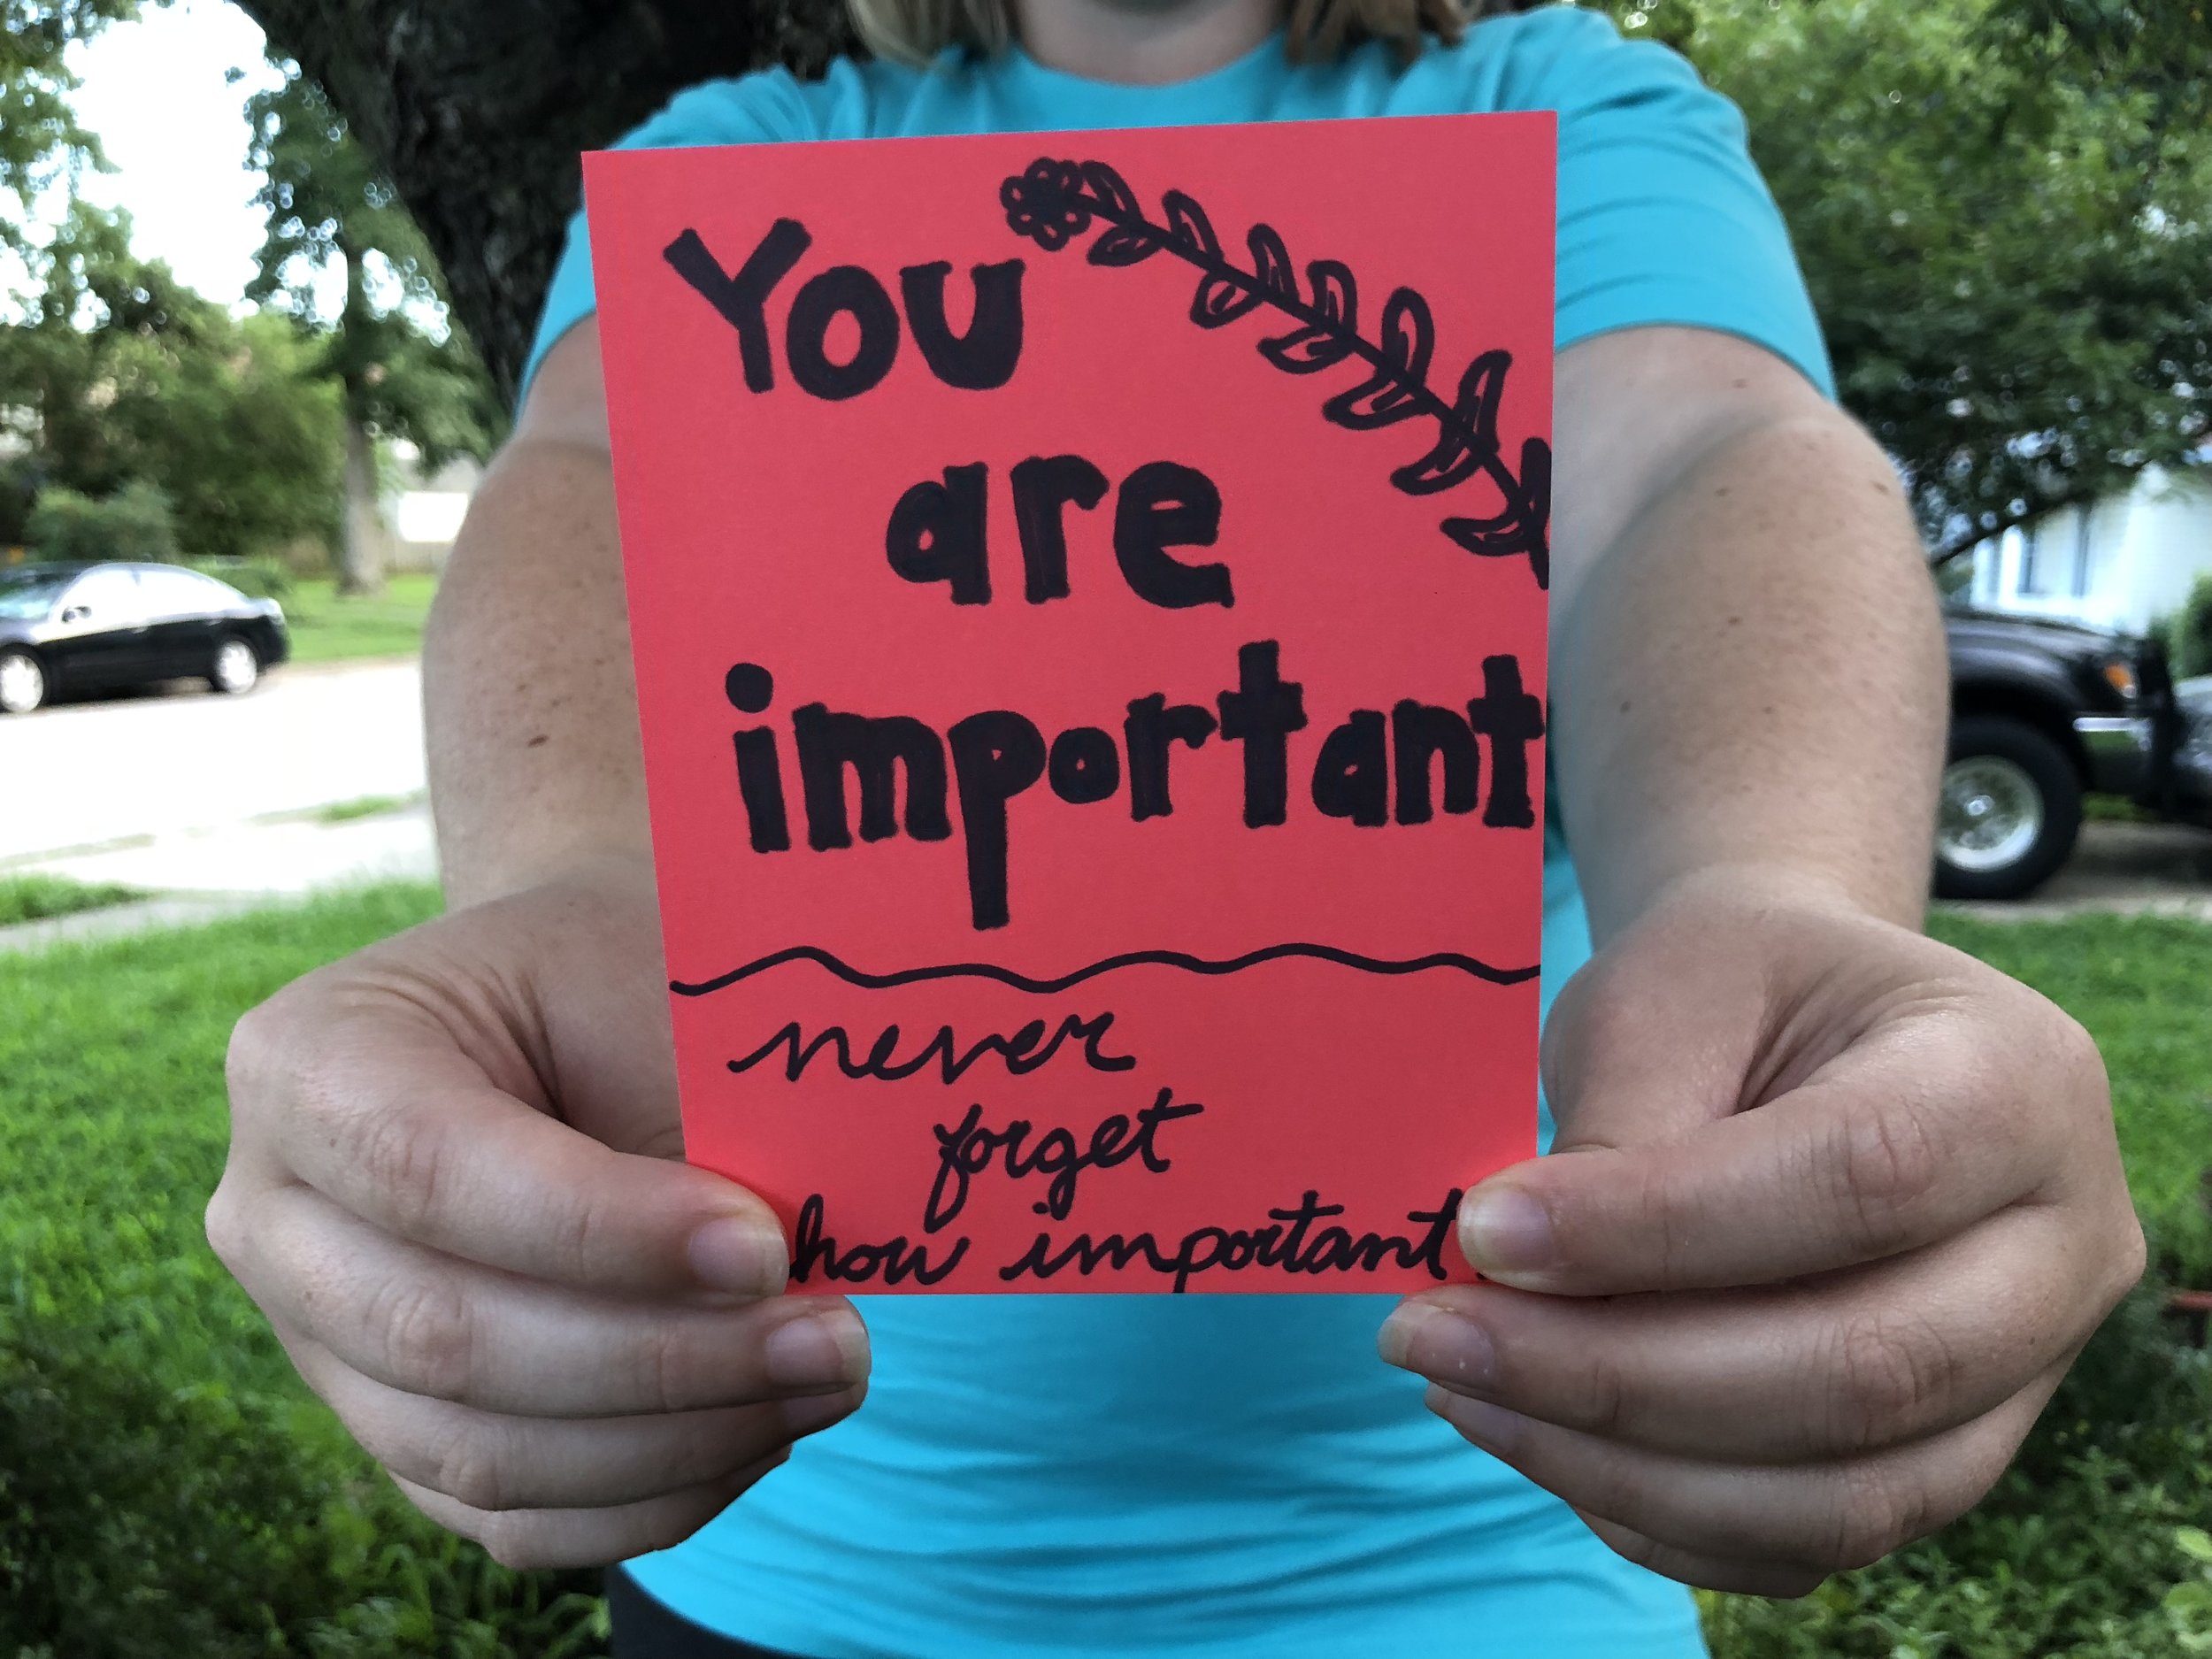 You
are
important
never
forget
how important